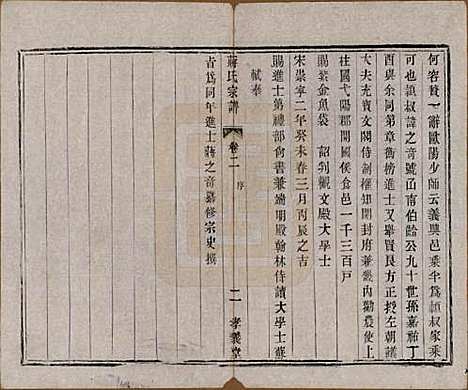 何容贊一辭歐陽少師云義興邑乘半爲恒叔家乘
可也頴叔諱之奇號山南伯齡公九十世孫嘉祐丁
酉與余同第章衡榜進士又舉賢良方正授左朝議
大夫充寶文閣侍制權知開封府兼畿內勸農使上
柱國弋陽郡開國侯食邑一千三百戸
賜紫金魚袋 詔判觀文殿大學士
宋崇寧二年癸未春三月丙辰之吉
賜進士第禮部尙書兼端明殿翰林侍讀大學士蘇
軾奉
蔣氏家譜 卷二 序 二 孝義堂
旨爲同年進士蔣之奇纂修宗史撰